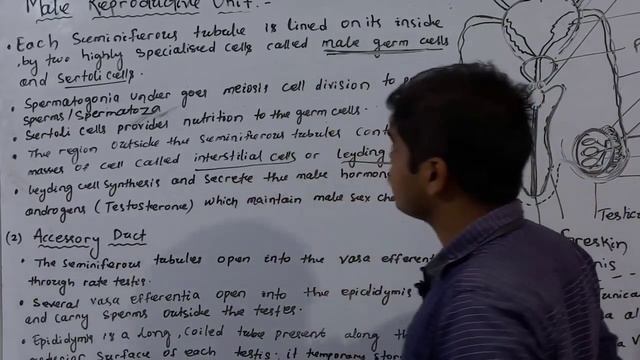 Male Reproductive Unit :-
• Each Seminiferous tubule is lined on its inside
by two highly specialised cells called male germ cells
and Sertoli cells.
• Spermatogonia under goes meiosis cell division to
sperms/Spermatoza
• Sertoli cells provides nutrition to the germ cells.
• The region outside the seminiferous tubules
masses of cell called interstilial cells or leyding
• leyding cell synthesis and secrete the male hormon
androgens (Testosterone) which maintain male sex cha
(2) Accessory Duct
• The seminiferous tubules open into the vasa efferent
through rate testis.
• Several vasa efferentia open into the epididymis
and carry sperms outside the testes.
• Epididymis is a long, coiled tube present along th
surface of each testis. it temporary stor
Testic
oreskin
nis